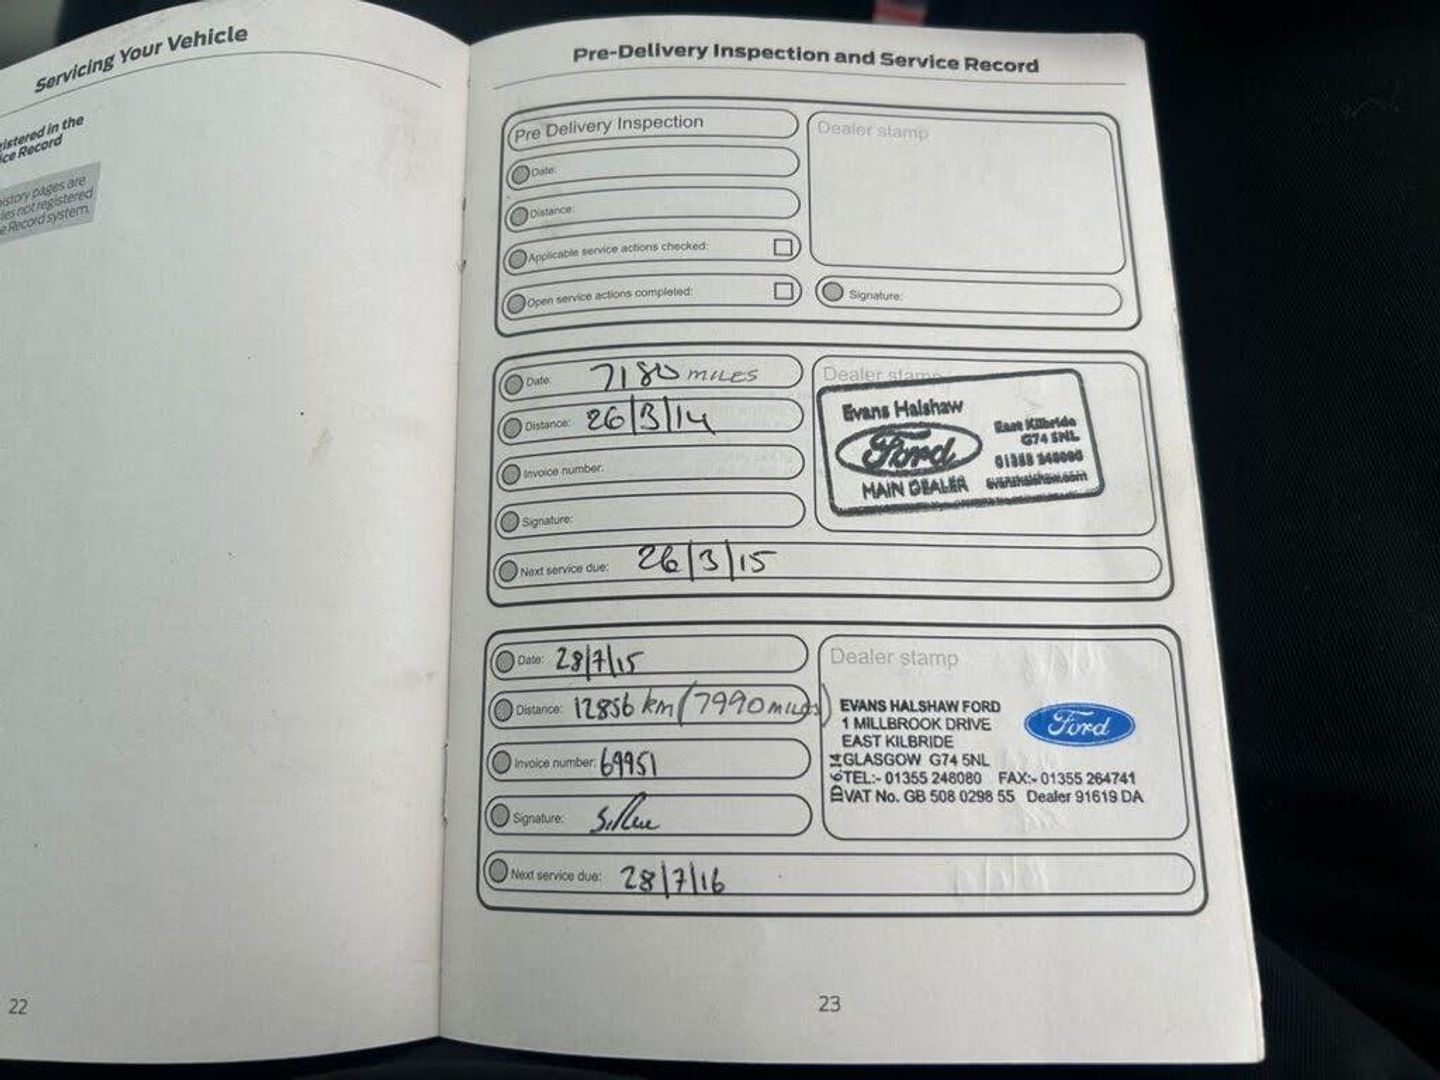 Servicing Your Vehicle
gistered in the
ice Record
history pages are
les not registered
e Record system.
22
Pre-Delivery Inspection and Service Record
Pre Delivery Inspection
Date:
Distance:
Applicable service actions checked:
Open service actions completed:
Dealer stamp
Signature:
Date: 7180 MILES
Distance: 26/3/14
Invoice number:
Signature:
Next service due: 26/3/15
Dealer stamp
Evans Halshaw
Ford
MAIN DEALER
East Kilbride
G74 5NL
01355 248080
evanshalshaw.com
Date: 28/7/15
Distance: 12856 km (7990 MILES)
Invoice number: 69951
Signature:
Next service due: 28/7/16
Dealer stamp
EVANS HALSHAW FORD
1 MILLBROOK DRIVE
EAST KILBRIDE
GLASGOW G74 5NL
TEL:- 01355 248080 FAX:- 01355 264741
VAT No. GB 508 0298 55 Dealer 91619 DA
Ford
23